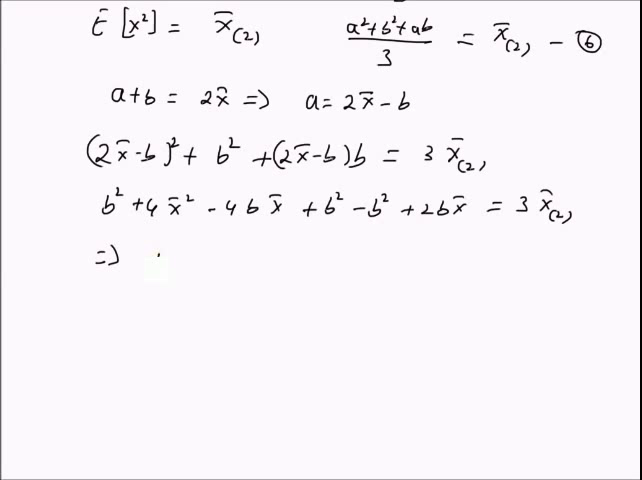 E[x²] = x̄₍₂₎ (a²+b²+ab)/3 = x̄₍₂₎ - ⑥
a+b = 2x̄ => a = 2x̄ - b
(2x̄-b)² + b² + (2x̄-b)b = 3 x̄₍₂₎
b² + 4x̄² - 4bx̄ + b² - b² + 2bx̄ = 3 x̄₍₂₎
=>